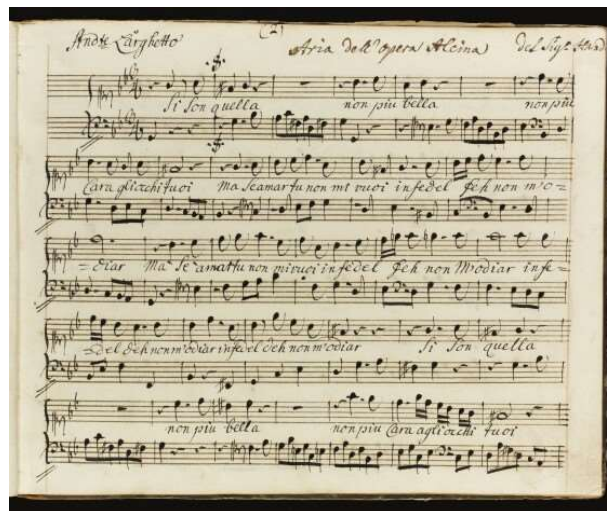 (2)
And.te Larghetto Aria dell'opera Alcina Del Sig.r Hend
Si Son quella non piu bella non piu
Cara gliocchi tuoi Ma Se amar tu non mi vuoi infedel Deh non m'o=
=diar Ma Se amar tu non mi vuoi infedel Deh non M'odiar infe=
=del Deh non m'odiar infedel deh non m'odiar Si Son quella
non piu bella non piu Cara agliocchi tuoi